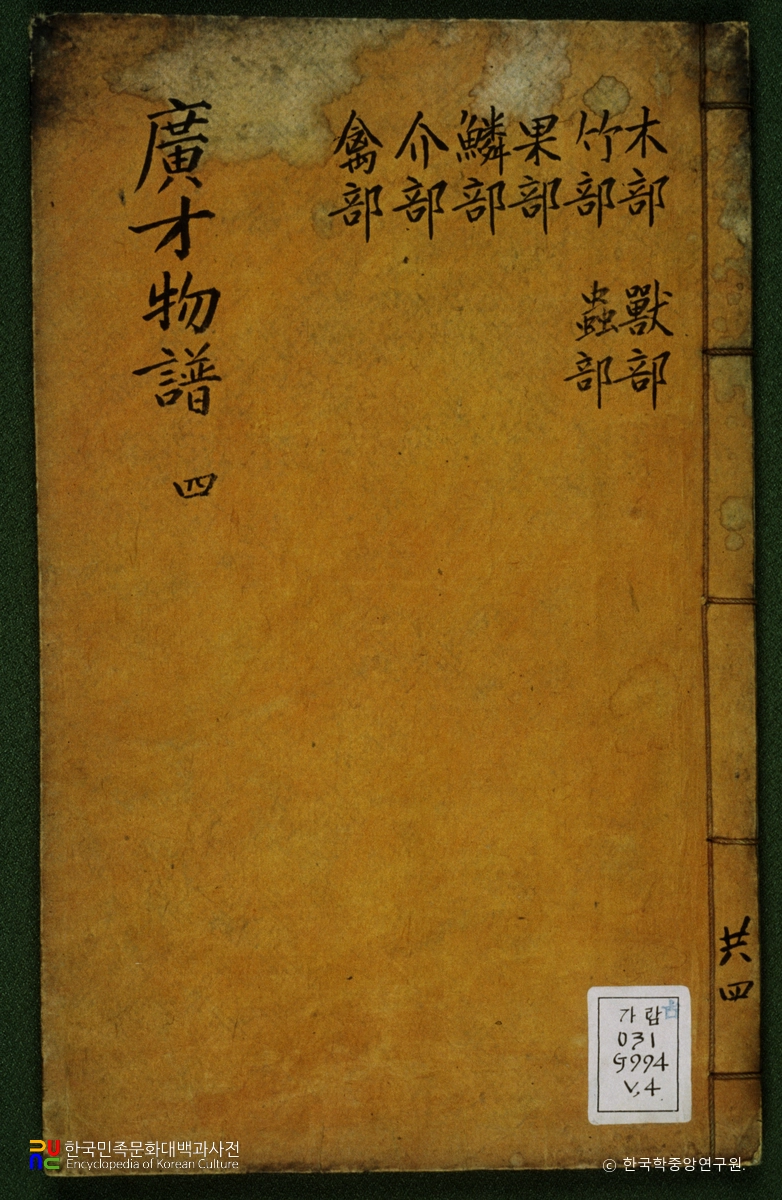 木部 獸部
竹部 蟲部
果部
鱗部
介部
禽部
廣才物譜 四
共四
가람 古
031
G994
V.4
한국민족문화대백과사전
Encyclopedia of Korean Culture
© 한국학중앙연구원.